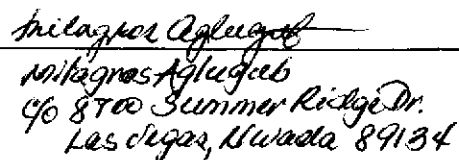 Milagros Aglugub
Milagros Aglugub
c/o 8700 Summer Ridge Dr.
Las Vegas, Nevada 89134